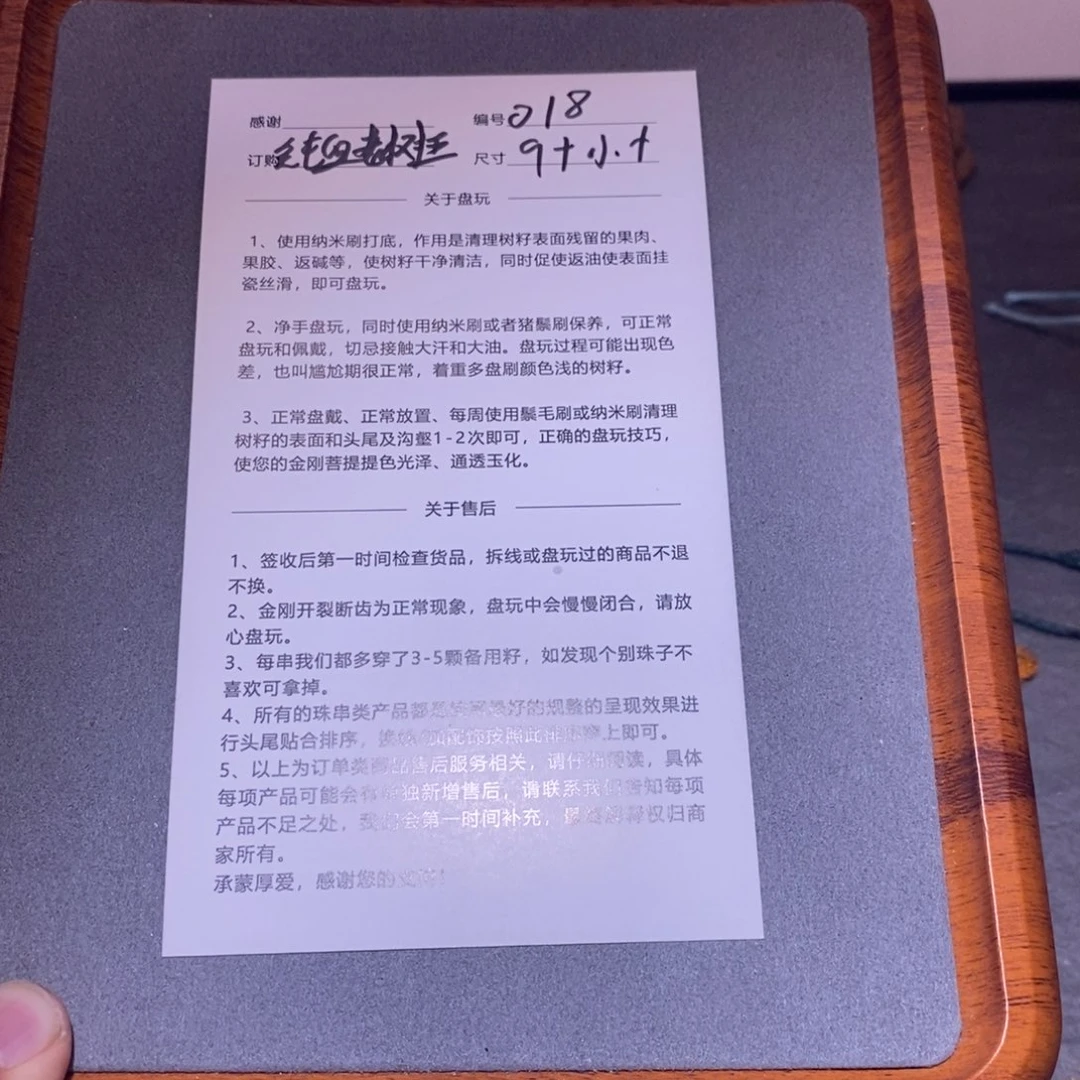 感谢 编号018
订购 尺寸9+小+
关于盘玩
1、使用纳米刷打底，作用是清理树籽表面残留的果肉、
果胶、返碱等，使树籽干净清洁，同时促使返油使表面挂
瓷丝滑，即可盘玩。
2、净手盘玩，同时使用纳米刷或者猪鬃刷保养，可正常
盘玩和佩戴，切忌接触大汗和大油。盘玩过程可能出现色
差，也叫尴尬期很正常，着重多盘刷颜色浅的树籽。
3、正常盘戴、正常放置、每周使用鬃毛刷或纳米刷清理
树籽的表面和头尾及沟壑1-2次即可，正确的盘玩技巧，
使您的金刚菩提提色光泽、通透玉化。
关于售后
1、签收后第一时间检查货品，拆线或盘玩过的商品不退
不换。
2、金刚开裂断齿为正常现象，盘玩中会慢慢闭合，请放
心盘玩。
3、每串我们都多穿了3-5颗备用籽，如发现个别珠子不
喜欢可拿掉。
4、所有的珠串类产品都是按最好的规整的呈现效果进
行头尾贴合排序，按照此排序穿上即可。
5、以上为订单类商品售后服务相关，请仔细阅读，具体
每项产品可能会有单独新增售后，请联系我们告知每项
产品不足之处，我们会第一时间补充，最终解释权归商
家所有。
承蒙厚爱，感谢您的支持！